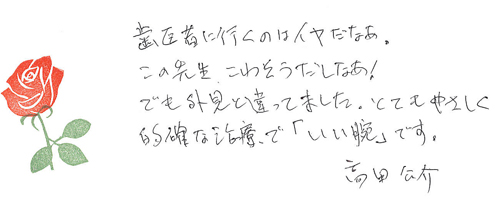 歯医者に行くのはイヤだなあ。
この先生、こわそうだしなあ！
でも外見と違ってました。とてもやさしく
的確な治療、で「いい腕」です。
高田公介